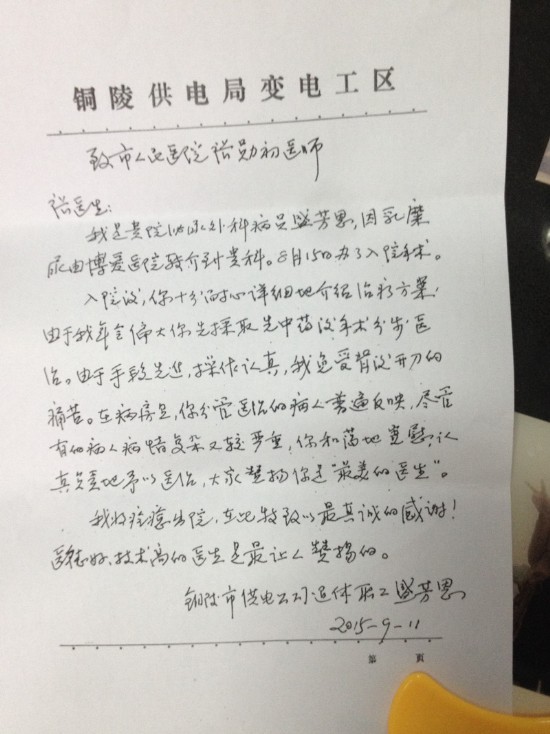 铜陵供电局变电工区
致市人民医院褚勋初医师
褚医生:
我是贵院泌尿外科病员盛芳恩,因乳糜
尿由博爱医院转介到贵科。8月15日办了入院手术。
入院后,你十分耐心详细地介绍治疗方案,
由于我年令偏大你先采取先中药后手术分步医
治。由于手段先进,操作认真,我免受背后开刀的
痛苦。在病房里,你分管医治的病人普遍反映,尽管
有的病人病情复杂又较严重,你和蔼地宽慰,认
真负责地予以医治,大家赞扬你是"最美的医生"。
我将痊愈出院,在此特致以最真诚的感谢!
医德好、技术高的医生是最让人赞扬的。
铜陵市供电公司退休职工盛芳恩
2015-9-11
第 页